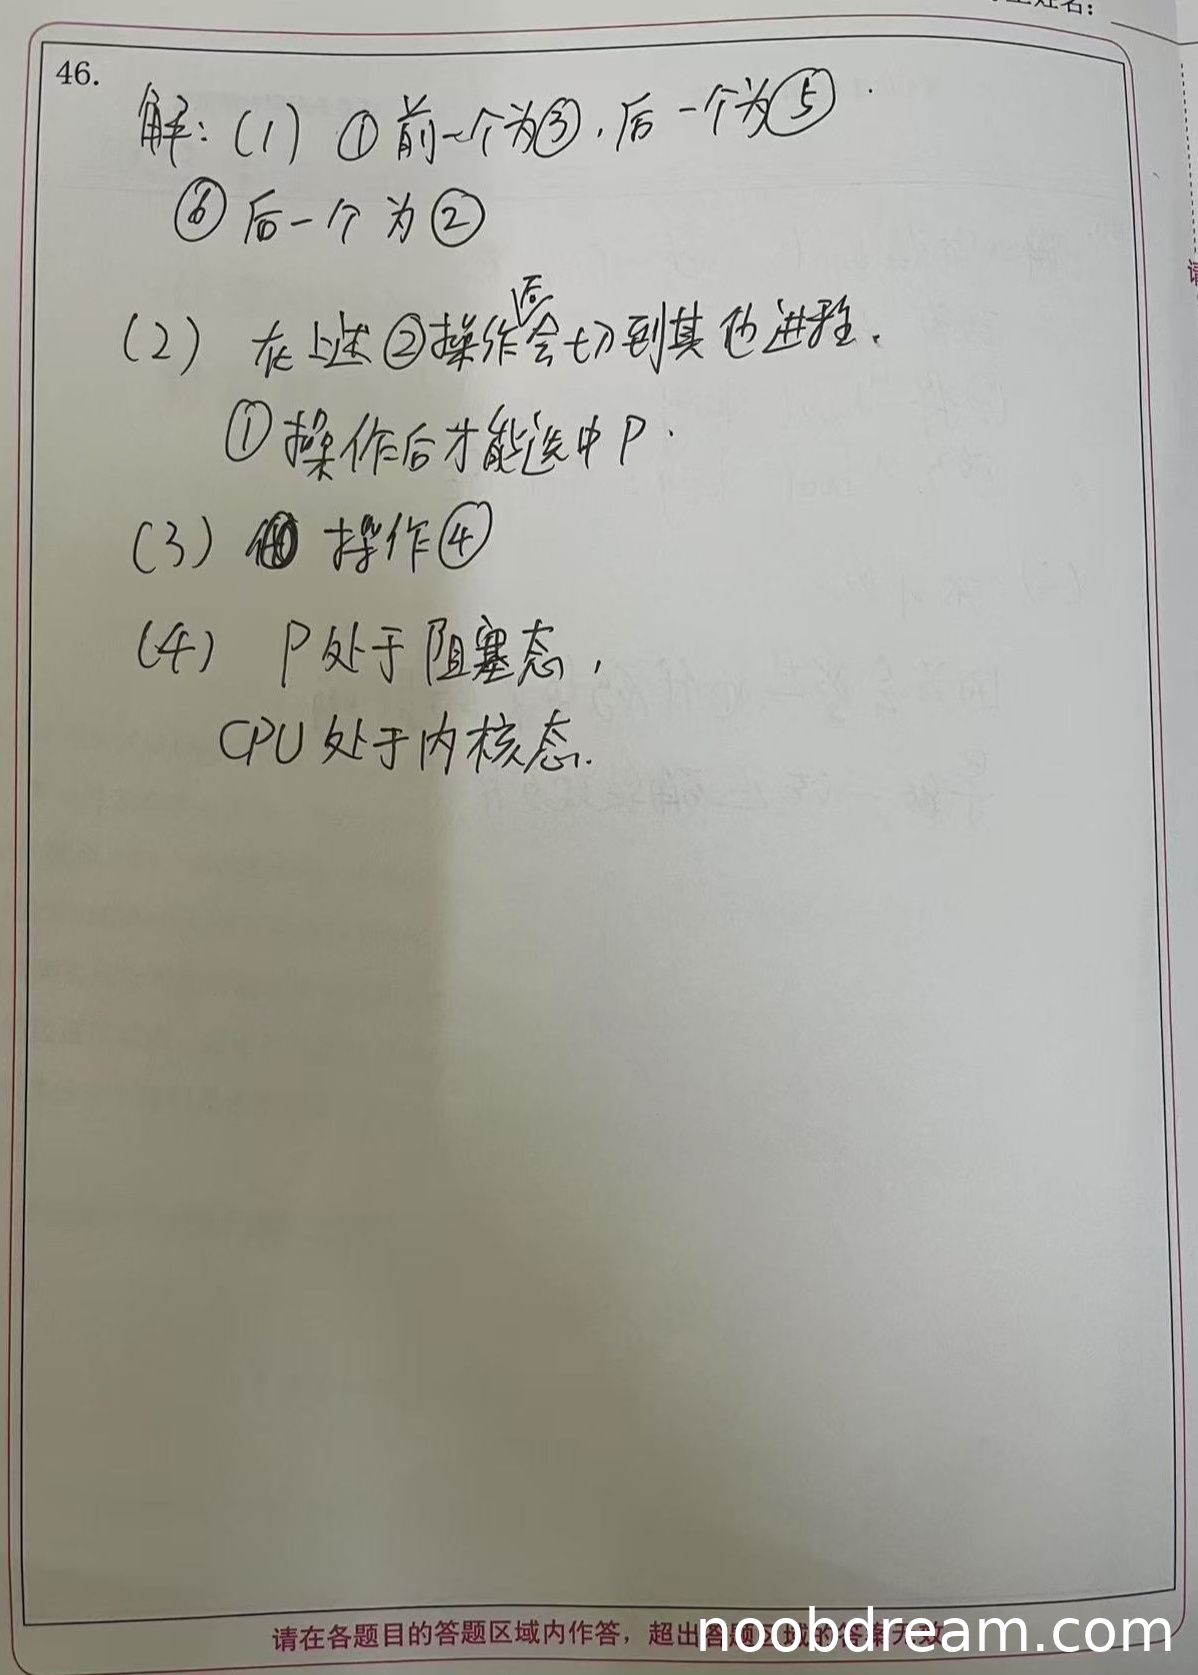 生姓名：
46.
解：(1) ①前一个为③，后一个为⑤.
⑥后一个为②
(2) 在上述②操作后会切到其他进程.
①操作后才能选中P.
(3) 操作④
(4) P处于阻塞态，
CPU处于内核态.
请在各题目的答题区域内作答，超出答题区域的答案无效
noobdream.com